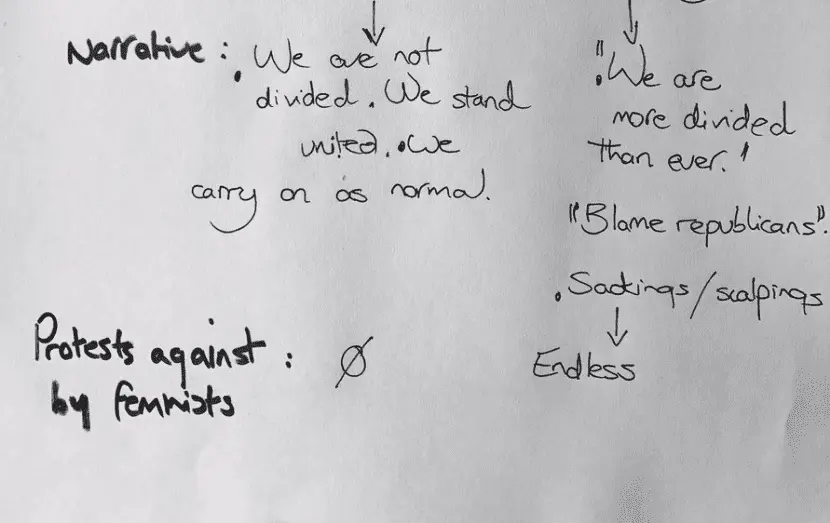 Narrative : . We are not
divided. We stand
united. . We
carry on as normal.
". We are
more divided
than ever.'
"Blame republicans".
. Sackings/scalpings
↓
Protests against : Ø
by femnists
Endless